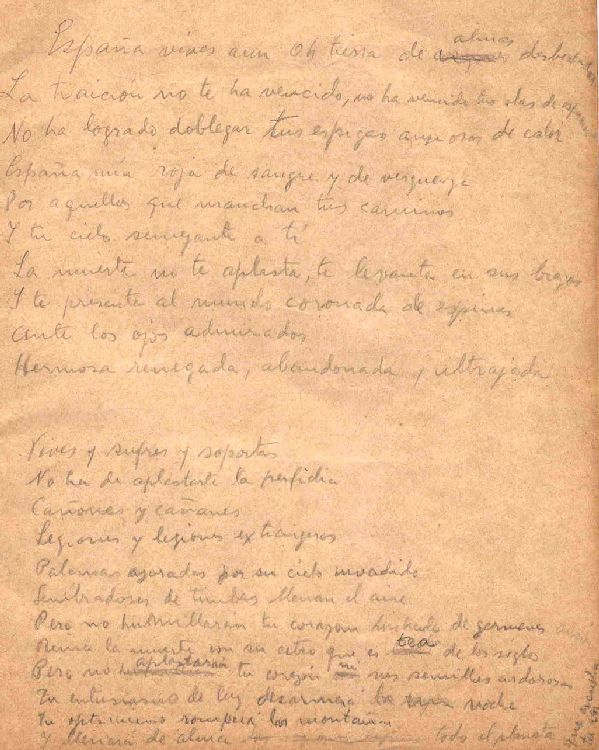 España vives aun Oh tierra de almas desbordadas
La traicion no te ha vencido, no ha vencido tus olas de
No ha logrado doblegar tus espigas ansiosas de calor
España mia roja de sangre y de verguenza
Por aquellos que manchan tus caminos
Y tu cielo semejante a tí
La muerte no te aplasta, te levanta en sus brazos
Y te presenta al mundo coronada de espinas
Ante los ojos admirados
Hermosa renegada, abandonada y ultrajada
Vives y sufres y soportas
No ha de aplastarte la perfidia
Cañones y cañones
Legiones y legiones extrangeros
Palomas azoradas por su cielo invadido
Sembradores de tumbas llenan el aire
Pero no humillaran tu corazon hinchado de germenes
Reina la muerte con su cetro que es tea de los siglos
Pero no aplastaran tu corazón ni sus semillas ardorosas
Tu entusiasmo de luz desarmará la noche
Tu optimismo romperá las montañas
Y llenará de alma todo el planeta